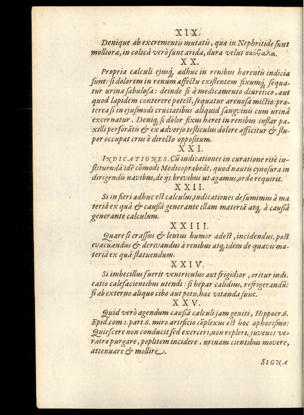 XIX.
Denique ab excrementii mutatis, qua in Nephritide sunt
molliora, in colicâ verò sunt arida, dura velut σκύβαλα.
XX.
Propria calculi ejusq́, adhuc in renibus hærentis indicia
sunt: si dolorem in renum affectu existentem fixumq́, sequa-
tur urina sabulosa: deinde si à medicamento diuretico, aut
quod lapidem conterere potest, sequatur arenosa mictio: præ-
terea si in ejusmodi cruciatibus aliquid sanguinis cum urinâ
excernatur. Deniq, si dolor fixus hæret in renibus instar pa-
xilli perforātis & ex adverso testiculus dolore afficitur & stu-
por occupat crus è directo oppositum.
XXI.
INDICATIONES. Cū indicationes in curatione ritè in-
stituendâ idē cōmodi Medico præbeāt, quod nautis cynosura in
dirigendis navibus, de ijs brevibus ut agamus, ordo requirit.
XXII.
Si in fieri adhuc est calculus, indicationes desumimus à ma-
teriâ ex quâ & causâ generante illam materiā atq, à causâ
generante calculum.
XXIII.
Quare si crassus & lentus humor adest, incidendus, post
evacuandus & derivandus à renibus atq, idem de quavis ma-
teriâ ex quâ statuendum.
XXIV.
Si imbecillus fuerit ventriculus aut frigidior, oritur indi-
catio calefacientibus utendi: si hepar calidius, refrigerandū:
si ab externo aliquo cibo aut potu, hæc vitanda sunt.
XXV.
Quid verò agendum causâ calculi jam geniti, Hippocr. 6.
Epid. com: part. 6. miro artificio cōplexus est hoc aphorismo:
Quiescere non conducit sed exerceri, non repleri, juvenes ve-
ratro purgare, poplitem incidere, urinam cientibus movere,
attenuare & mollire.
SIGNA